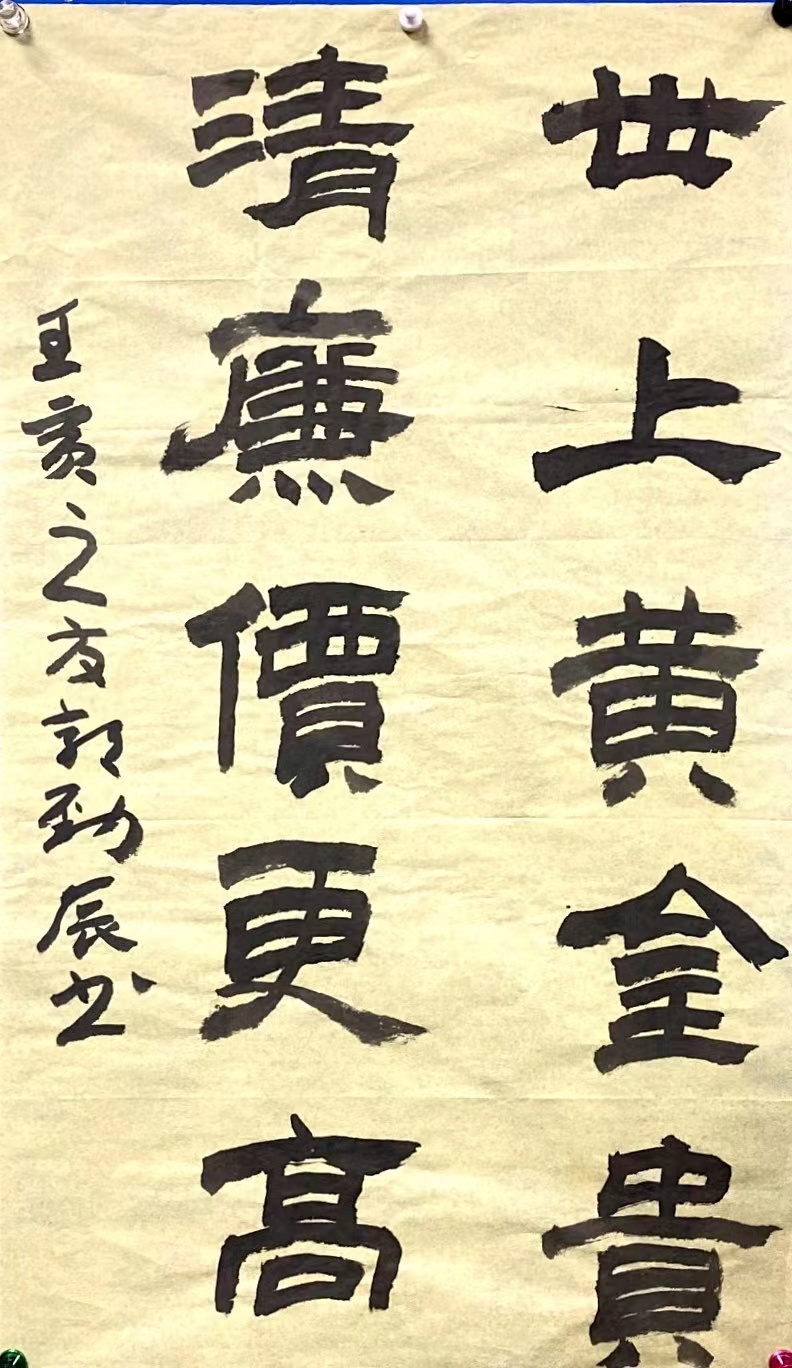 世上黄金貴
清廉價更髙
壬寅之夏郭勁辰书